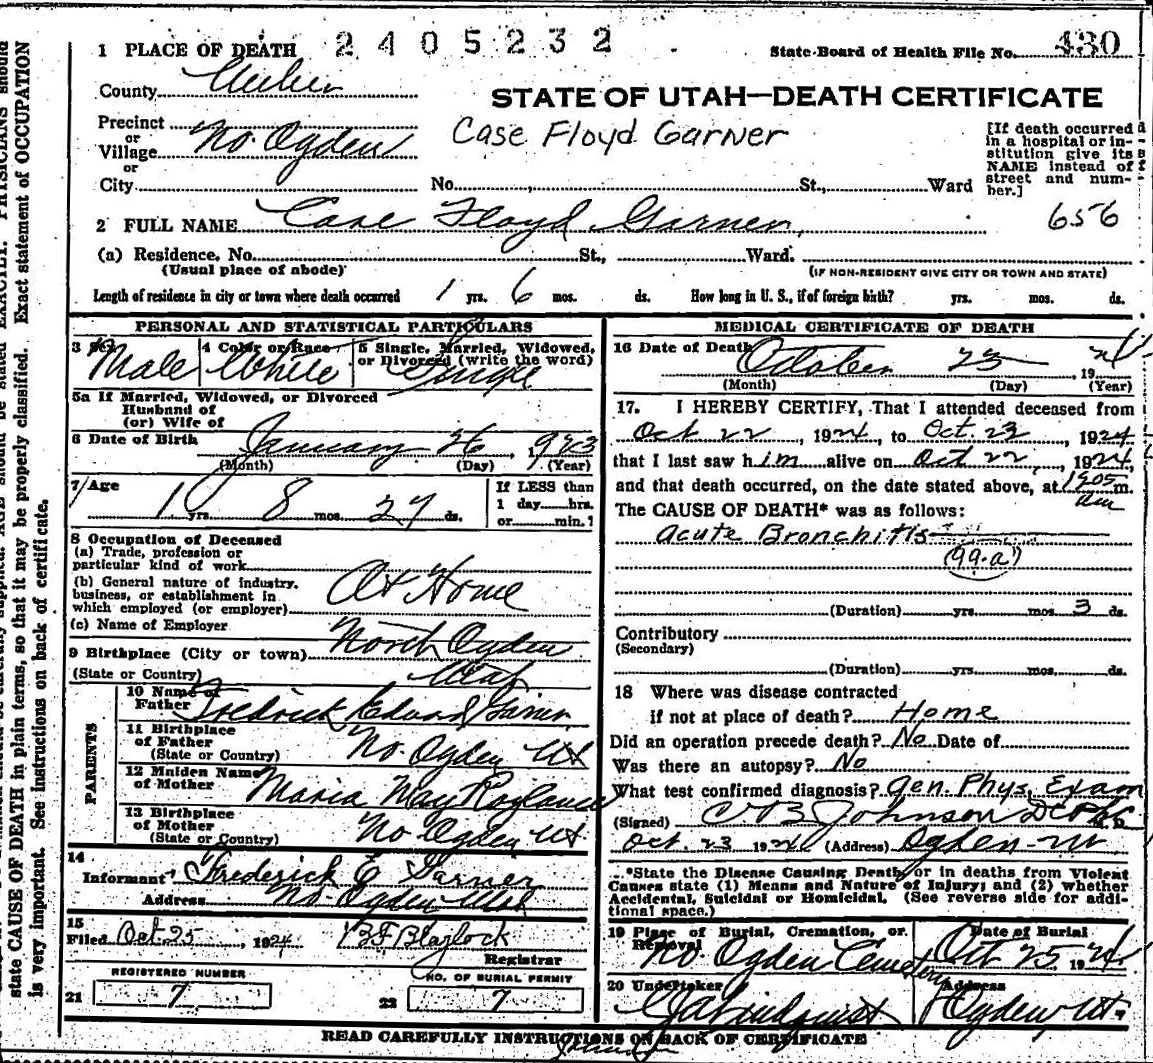 1 PLACE OF DEATH 2405232 State Board of Health File No. 430
County Weber
STATE OF UTAH—DEATH CERTIFICATE
Precinct
or
Village No. Ogden
or
Case Floyd Garner
[If death occurred
in a hospital or in-
stitution give its
NAME instead of
street and num-
ber.]
City No. , St., Ward
656
2 FULL NAME Case Floyd Garner,
(a) Residence. No. St., Ward.
(Usual place of abode) (IF NON-RESIDENT GIVE CITY OR TOWN AND STATE)
Length of residence in city or town where death occurred 1 yrs. 6 mos. ds. How long in U. S., if of foreign birth? yrs. mos. ds.
PERSONAL AND STATISTICAL PARTICULARS
3 Sex 4 Color or Race 5 Single, Married, Widowed,
or Divorced (write the word)
Male White Single
5a If Married, Widowed, or Divorced
Husband of
(or) Wife of
6 Date of Birth January 26, 1923
(Month) (Day) (Year)
7 Age 1 yrs 8 mos. 27 ds.
If LESS than
1 day hrs.
or min.?
8 Occupation of Deceased
(a) Trade, profession or
particular kind of work
(b) General nature of industry,
business, or establishment in
which employed (or employer)
At Home
(c) Name of Employer
9 Birthplace (City or town) North Ogden
(State or Country) Utah
PARENTS
10 Name of
Father Fredrick Edward Garner
11 Birthplace
of Father
(State or Country) No. Ogden Ut
12 Maiden Name
of Mother Maria May
13 Birthplace
of Mother
(State or Country) No. Ogden Ut
14
Informant Frederick E Garner
Address No. Ogden Utah
15
Filed Oct. 25, 1924 Blaylock
Registrar
REGISTERED NUMBER NO. OF BURIAL PERMIT
21 7 22 7
MEDICAL CERTIFICATE OF DEATH
16 Date of Death October 23 1924
(Month) (Day) (Year)
17. I HEREBY CERTIFY, That I attended deceased from
Oct 22, 1924, to Oct. 23, 1924
that I last saw him alive on Oct 22, 1924,
and that death occurred, on the date stated above, at 1205 m.
am
The CAUSE OF DEATH* was as follows:
Acute Bronchitis
(99.a)
(Duration) yrs. mos. 3 ds.
Contributory
(Secondary)
(Duration) yrs. mos. ds.
18 Where was disease contracted
if not at place of death? Home
Did an operation precede death? No Date of
Was there an autopsy? No
What test confirmed diagnosis? Gen. Phys. Exam
(Signed) Johnson
Oct. 23 1924 (Address) Ogden
*State the Disease Causing Death, or in deaths from Violent
Causes state (1) Means and Nature of Injury; and (2) whether
Accidental, Suicidal or Homicidal. (See reverse side for addi-
tional space.)
19 Place of Burial, Cremation, or
Removal
Date of Burial
No. Ogden Cemetery Oct 25 1924
20 Undertaker Address
Lindquist Ogden Ut.
READ CAREFULLY INSTRUCTIONS ON BACK OF CERTIFICATE
state CAUSE OF DEATH in plain terms, so that it may be properly classified. Exact statement of OCCUPATION
is very important. See instructions on back of certificate.